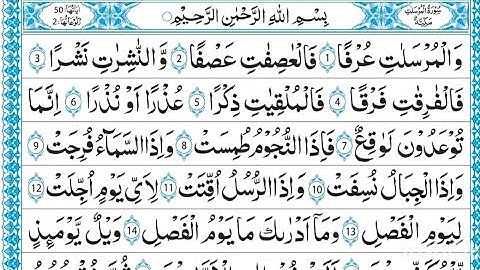 سُوْرَةُ الْمُرْسَلٰتِ بِسْمِ اللهِ الرَّحْمٰنِ الرَّحِيْمِ اٰيَاتُهَا: 50
مَكِّيَّةٌ رُكُوْعَاتُهَا: 2
وَالْمُرْسَلٰتِ عُرْفًا 1 فَالْعٰصِفٰتِ عَصْفًا 2 وَّالنّٰشِرٰتِ نَشْرًا 3
فَالْفٰرِقٰتِ فَرْقًا 4 فَالْمُلْقِيٰتِ ذِكْرًا 5 عُذْرًا اَوْ نُذْرًا 6 اِنَّمَا
تُوْعَدُوْنَ لَوَاقِعٌ 7 فَاِذَا النُّجُوْمُ طُمِسَتْ 8 وَاِذَا السَّمَآءُ فُرِجَتْ 9
وَاِذَا الْجِبَالُ نُسِفَتْ 10 وَاِذَا الرُّسُلُ اُقِّتَتْ 11 لِاَيِّ يَوْمٍ اُجِّلَتْ 12
لِيَوْمِ الْفَصْلِ 13 وَمَآ اَدْرٰىكَ مَا يَوْمُ الْفَصْلِ 14 وَيْلٌ يَّوْمَئِذٍ